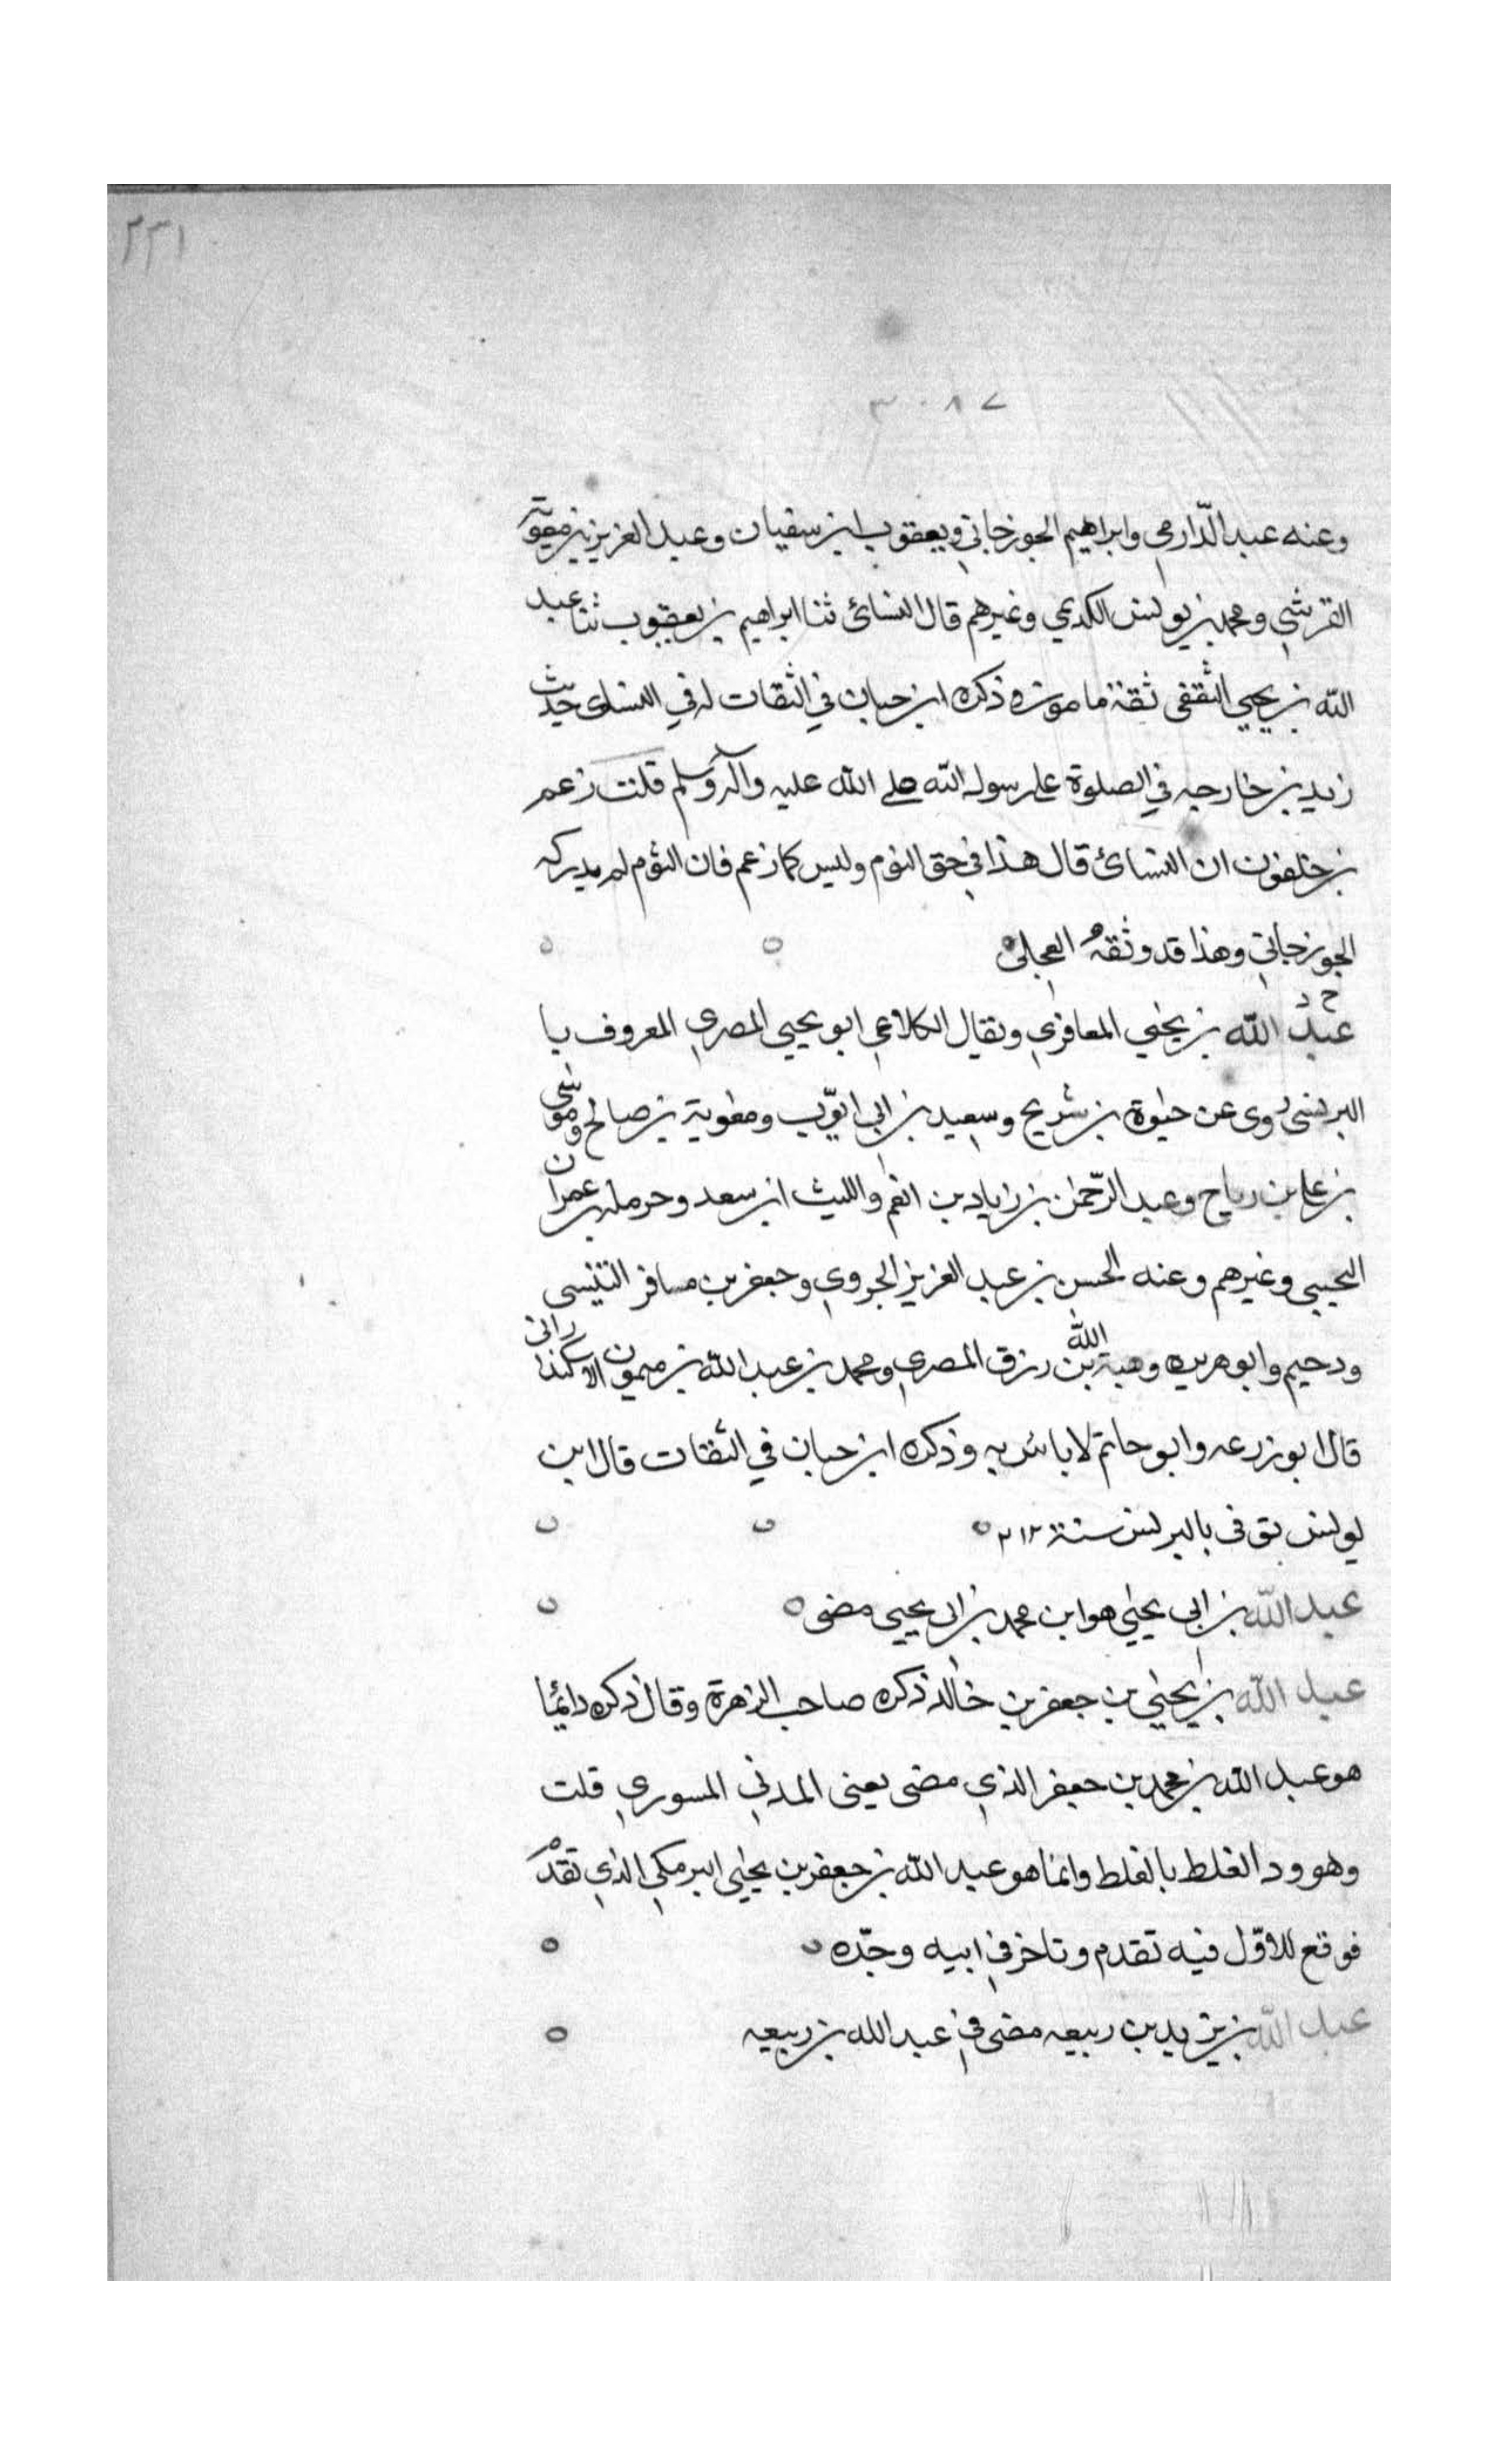 ٢٣١
٣٠٨٧
وعنه عبد الدّارمي وابراهيم الجوزجاني ويعقوب ابن سفيان وعبد العزيز بن معوية
القرشي ومحمد بن يونس الكديمي وغيرهم قال النسائ ثنا ابراهيم بن يعقوب ثنا عبد
الله بن يحيى الثقفى ثقة مامون وذكره ابن حبان في الثقات له في النساى حديث
زيد بن خارجه في الصلوة على رسول الله صلى الله عليه وآله وسلم قلت زعم
بن خلفون ان النسائ قال هذا في حق التوم وليس كما زعم فان التوم لم يدركه
الجوزجاني وهذا قد وثقه العجلى
خ د
عبد الله بن يحيى المعافري ويقال الكلاعي ابو يحيى المصري المعروف با
البرلسى روى عن حيوة بن شريح وسعيد بن ابي ايوّب ومعوية بن صالح وموسى
بن على بن رباح وعبد الرّحمن بن زياد بن انعم والليث ابن سعد وحرمله بن عمران
التجيبي وغيرهم وعنه الحسن بن عبد العزيز الجروي وجعفر بن مسافر التنيسى
ودحيم وابو هريره وهبة الله بن رزق المصري ومحمد بن عبد الله بن ميمون الاسكندرانى
قال ابو زرعه وابو حاتم لا باس به وذكره ابن حبان في الثقات قال ابن
يونس توفى بالبرلس سنة ٢١٢
عبد الله بن ابي يحيى هو ابن محمد بن ابى يحيى مضى
عبد الله بن يحيى بن جعفر بن خالد ذكره صاحب الزهرة وقال ذكره دائما
هو عبد الله بن محمد بن جعفر الذي مضى يعنى المدني المسوري قلت
وهو ود الغلط بالغلط وانما هو عبد الله بن جعفر بن يحيى البرمكي الذي تقدم
فوقع للاوّل فيه تقدم وتاخر في ابيه وجدّه
عبد الله بن يزيد بن ربيعه مضى في عبد الله بن ربيعه